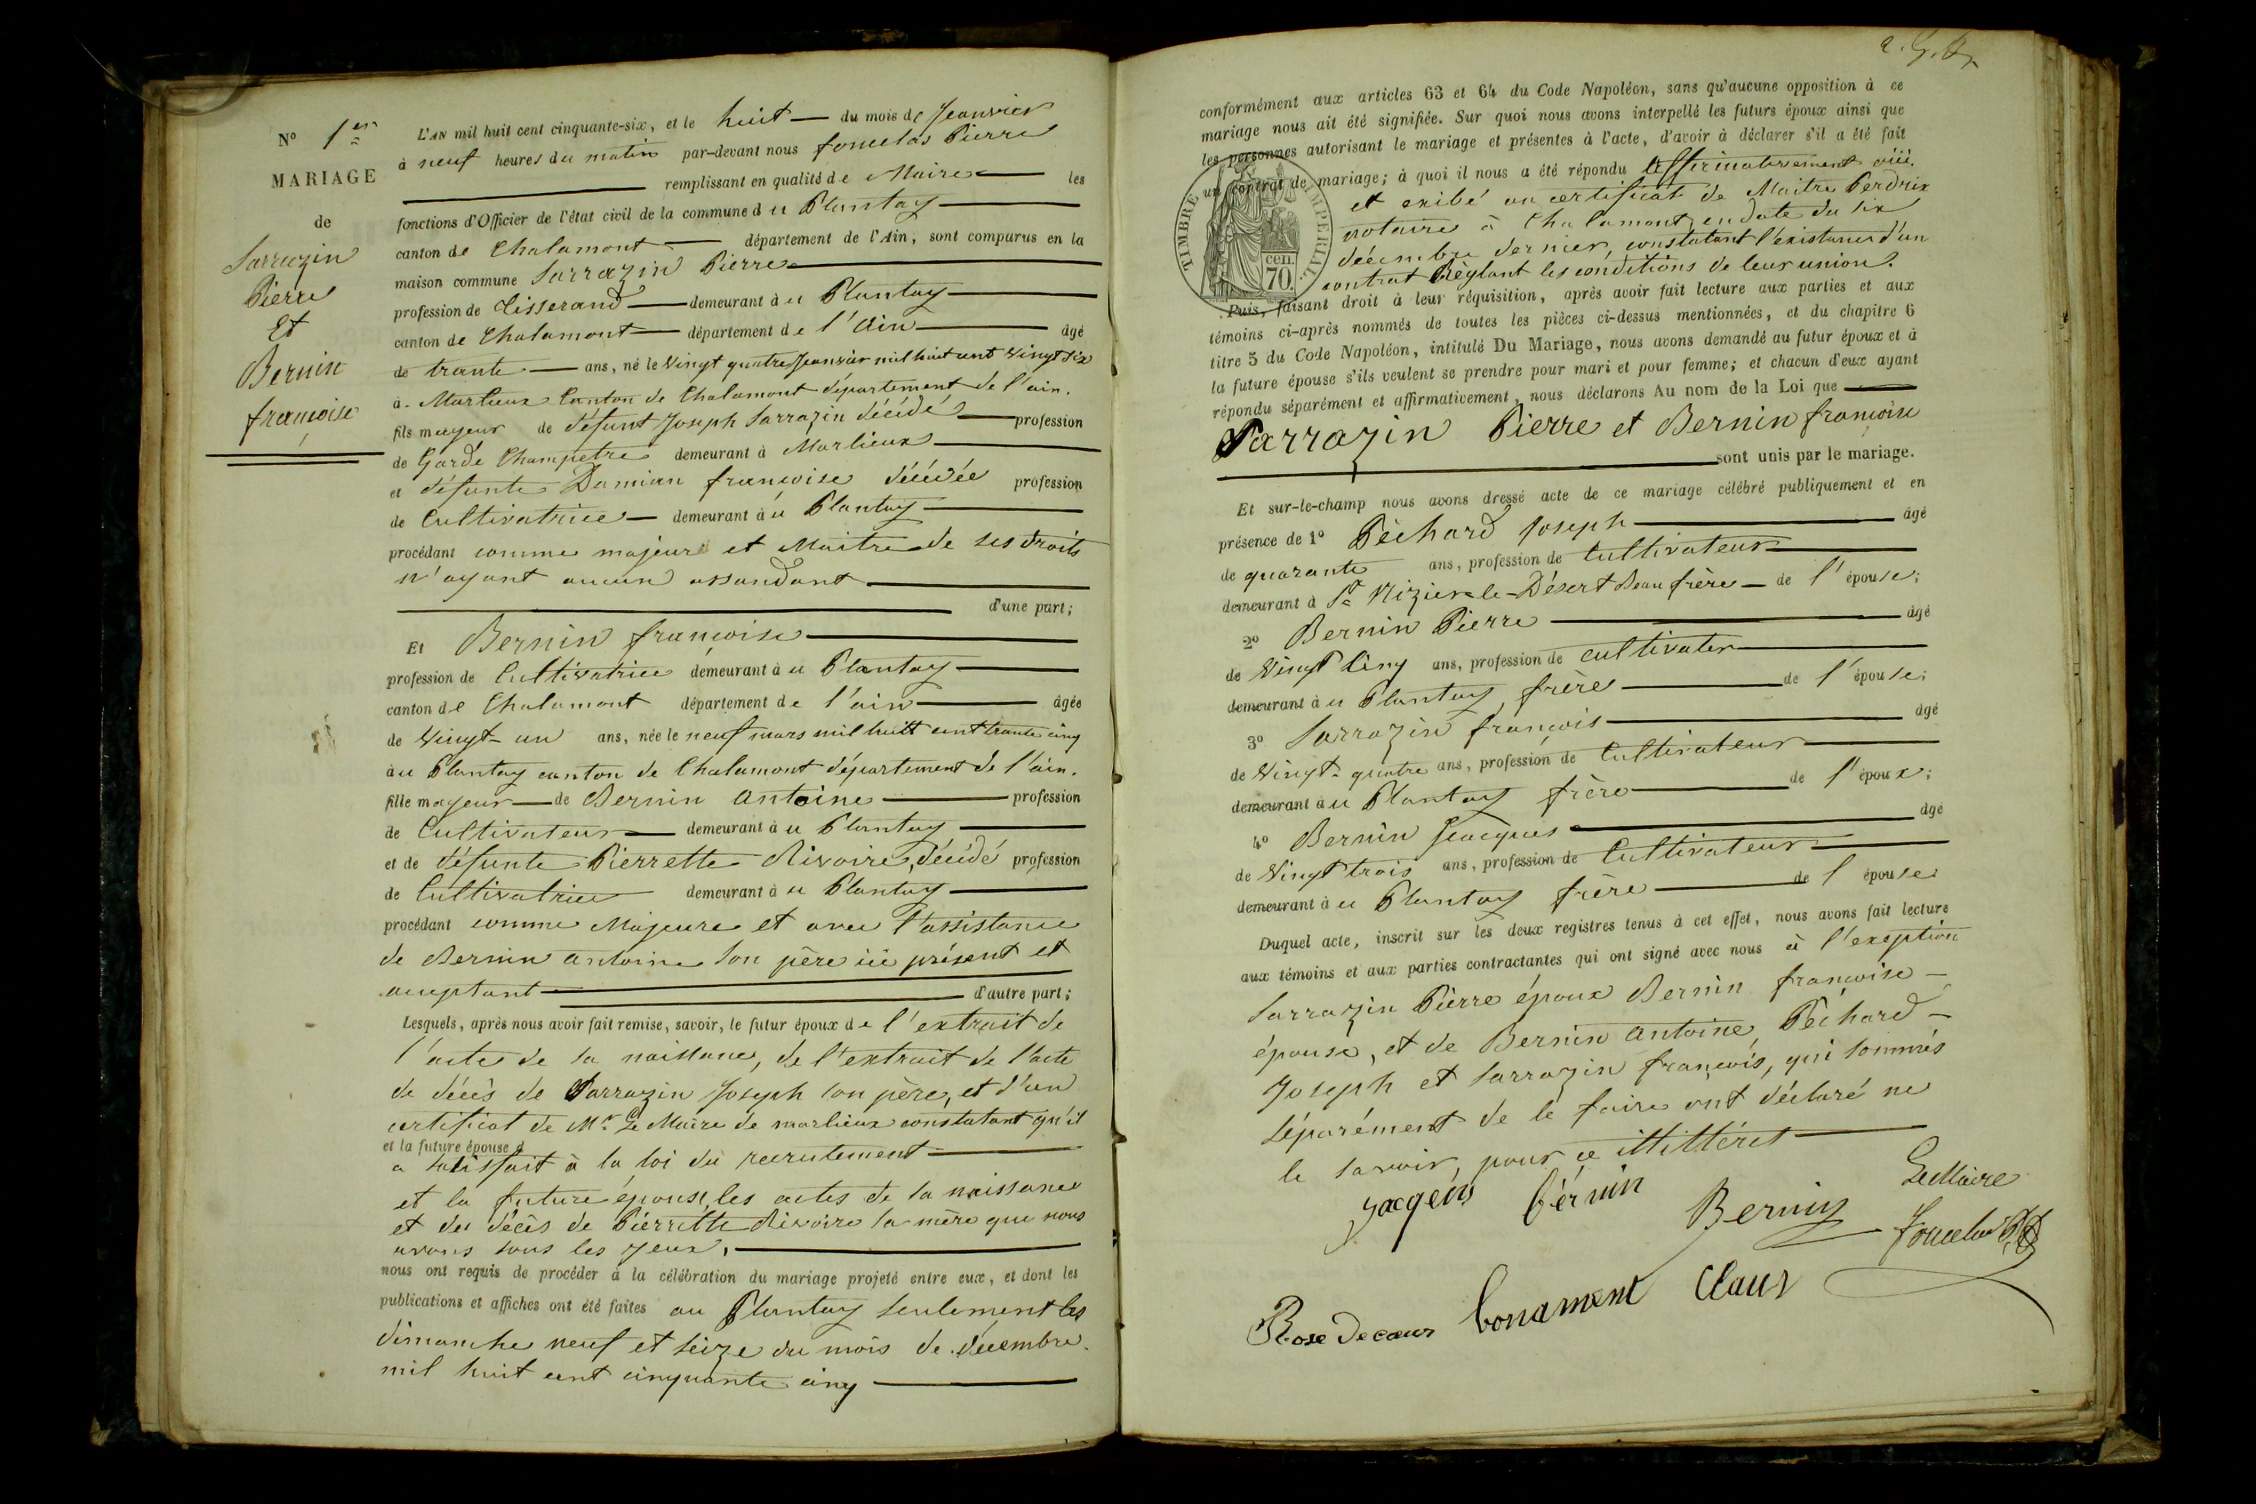 N° 1er
MARIAGE
de
Sarrazin
Pierre
Et
Bernin
françoise
L'AN mil huit cent cinquante-six, et le huit du mois de Jeanvier
à neuf heures du matin par-devant nous foncelas Pierre
remplissant en qualité de Maire les
fonctions d'Officier de l'état civil de la commune du Plantay
canton de Chalamont département de l'Ain, sont comparus en la
maison commune Sarrazin Pierre
profession de tisserand demeurant à u Plantay
canton de Chalamont département de l'Ain âgé
de trante ans, né le Vingt quatre Jeanvier mil huit cent Vingt six
à Marlieux Canton de Chalamont département de l'ain.
fils mayeur de défunt Joseph Sarrazin décédé profession
de Garde Champetre demeurant à Marlieux
et défunte Damian françoise décédée profession
de Cultivatrice demeurant à u Plantay
procédant comme majeure et Maitre de ses droits
n'ayant aucun assandant
d'une part;
Et Bernin françoise
profession de Cultivatrice demeurant à u Plantay
canton de Chalamont département de l'ain âgée
de Vingt-un ans, née le neuf mars mil huitt cent trante cinq
àu Plantay canton de Chalamont département de l'ain.
fille mayeur de Bernin antoine profession
de Cultivateur demeurant à u Plantay
et de défunte Pierrette Rivoire, décédé profession
de Cultivatrice demeurant à u Plantay
procédant comme Majeure et avec l'assistance
de Bernin antoine Son père ici présent et
acceptant d'autre part;
Lesquels, après nous avoir fait remise, savoir, le futur époux de l'extrait de
l'acte de sa naissance, de l'extrait de l'acte
de décès de Sarrazin Joseph son père, et d'un
certificat de Mr Le Maire de marlieux constatant qu'il
et la future épouse d
a satisfait à la loi du recrutement
et la future épouse, les actes de sa naissance
et du décès de Pierrette Rivoire sa mère que nous
avons sous les yeux,
nous ont requis de procéder à la célébration du mariage projeté entre eux, et dont les
publications et affiches ont été faites au Plantay seulement les
dimanche neuf et seize du mois de décembre
mil huit cent cinquante cinq
conformément aux articles 63 et 64 du Code Napoléon, sans qu'aucune opposition à ce
mariage nous ait été signifiée. Sur quoi nous avons interpellé les futurs époux ainsi que
les personnes autorisant le mariage et présentes à l'acte, d'avoir à déclarer s'il a été fait
un contrat de mariage; à quoi il nous a été répondu Affirmativement oüi.
et exibé un certificat de Maitre Perdrix
notaire à Chalamont, en date du six
décembre dernier, constatant l'existance d'un
contrat Règlant les conditions de leur union.
TIMBRE IMPÉRIAL
cen.
70.
Puis, faisant droit à leur réquisition, après avoir fait lecture aux parties et aux
témoins ci-après nommés de toutes les pièces ci-dessus mentionnées, et du chapitre 6
titre 5 du Code Napoléon, intitulé Du Mariage, nous avons demandé au futur époux et à
la future épouse s'ils veulent se prendre pour mari et pour femme; et chacun d'eux ayant
répondu séparément et affirmativement, nous déclarons Au nom de la Loi que
Sarrazin Pierre et Bernin françoise
sont unis par le mariage.
Et sur-le-champ nous avons dressé acte de ce mariage célébré publiquement et en
présence de 1° Péchard Joseph âgé
de quarante ans, profession de Cultivateur
demeurant à St Nizier-le-Désert Beau frère de l'épouse;
2° Bernin Pierre âgé
de Vingt Cinq ans, profession de cultivater
demeurant à u Plantay frère de l'épouse;
3° Sarrazin françois âgé
de Vingt-quatre ans, profession de Cultivateur
demeurant à u Plantay frère de l'époux;
4° Bernin Jeacques âgé
de Vingt trois ans, profession de Cultivateur
demeurant à u Plantay frère de l épouse
Duquel acte, inscrit sur les deux registres tenus à cet effet, nous avons fait lecture
aux témoins et aux parties contractantes qui ont signé avec nous à l'exeption
Sarrazin Pierre époux Bernin françoise
épouse, et de Bernin antoine, Péchard
Joseph et Sarrazin françois, qui sommés
séparément de le faire ont déclaré ne
le savoir, pour ce ittittéret
Jacqeus bérnin Bernin Le Maire
foncelas
Rose Decoeur bonament Claus